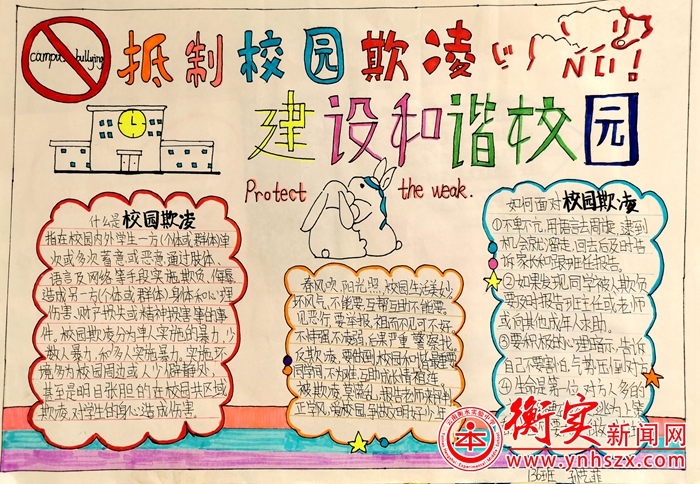 campus bullying
抵制校园欺凌
NO!
建设和谐校园
Protect the weak.
什么是校园欺凌
指在校园内外学生一方(个体或群体)单
次或多次蓄意或恶意通过肢体、
语言及网络等手段实施欺负、侮辱
造成另一方(个体或群体)身体和心理
伤害、财产损失或精神损害等的事
件。校园欺凌分为单人实施的暴力,少
数人暴力,和多人实施暴力。实施环
境多为校园周边或人少僻静处。
甚至是明目张胆的在校园共区域
欺凌,对学生的身心造成伤害。
春风吹,阳光照,校园生活美妙
坏风气,不能要,互帮互助不能要。
见恶行,要举报,袒而不见可不好。
不恃强,不凌弱,后果严重警察找
反欺凌,要做到,校园和谐最重要
同学间,不为难,互助成长情相连
被欺凌,莫慌乱,报告老师来评判
正学风,爱校园,争做文明好少年
如何面对校园欺凌
①不卑不亢,用语言去周旋,逮到
机会就溜走,回去后及时告
诉家长和跟班任报告。
②如果发现同学被人欺负
要及时报告班主任或老师
或向其他成年人求助。
③要积极的心理暗示,告诉
自己不要害怕,与
④生命是第一位,对方人多的
136班
衡实新闻网
www.ynhszx.com